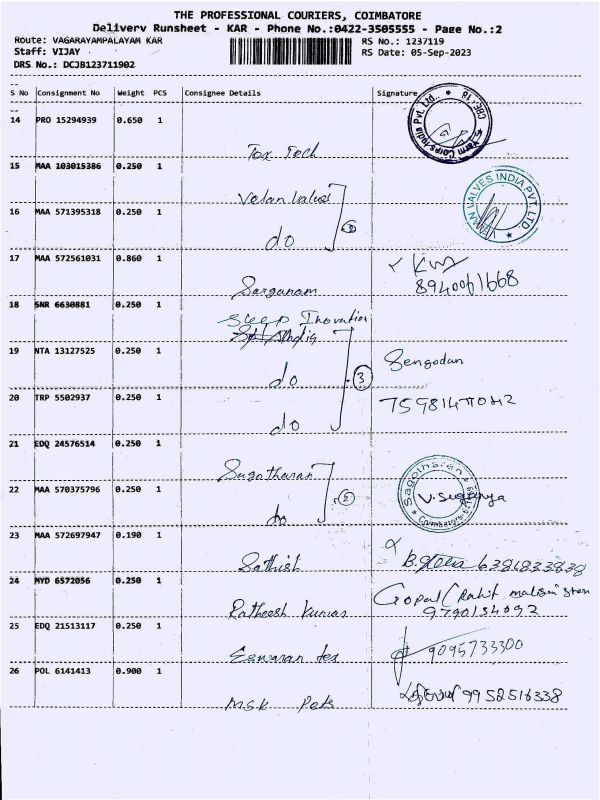 THE PROFESSIONAL COURIERS, COIMBATORE
Delivery Runsheet - KAR - Phone No.:0422-3505555 - Page No.:2
Route: VAGARAYAMPALAYAM KAR
RS No.: 1237119
Staff: VIJAY
RS Date: 05-Sep-2023
DRS No.: DCJB123711902
S No Consignment No Weight PCS Consignee Details Signature
14 PRO 15294939 0.650 1
Tox Tech
15 MAA 103015386 0.250 1
Velan Valves
VELAN VALVES INDIA PVT. LTD
16 MAA 571395318 0.250 1
do
17 MAA 572561031 0.860 1
Sarganam
8940061668
18 SNR 6630881 0.250 1
Sleep Inovation
19 NTA 13127525 0.250 1
do 3 Sengodan
20 TRP 5502937 0.250 1
do
21 EDQ 24576514 0.250 1
Sugotharan
22 MAA 570375796 0.250 1
do 2
Coimbatore
23 MAA 572697947 0.190 1
Sathish 6381833838
24 MYD 6572056 0.250 1
Ratheesh Kumar Gopal
9790154092
25 EDQ 21513117 0.250 1
Eswaran tex 9095733300
26 POL 6141413 0.900 1
MSK Pets 9952516338